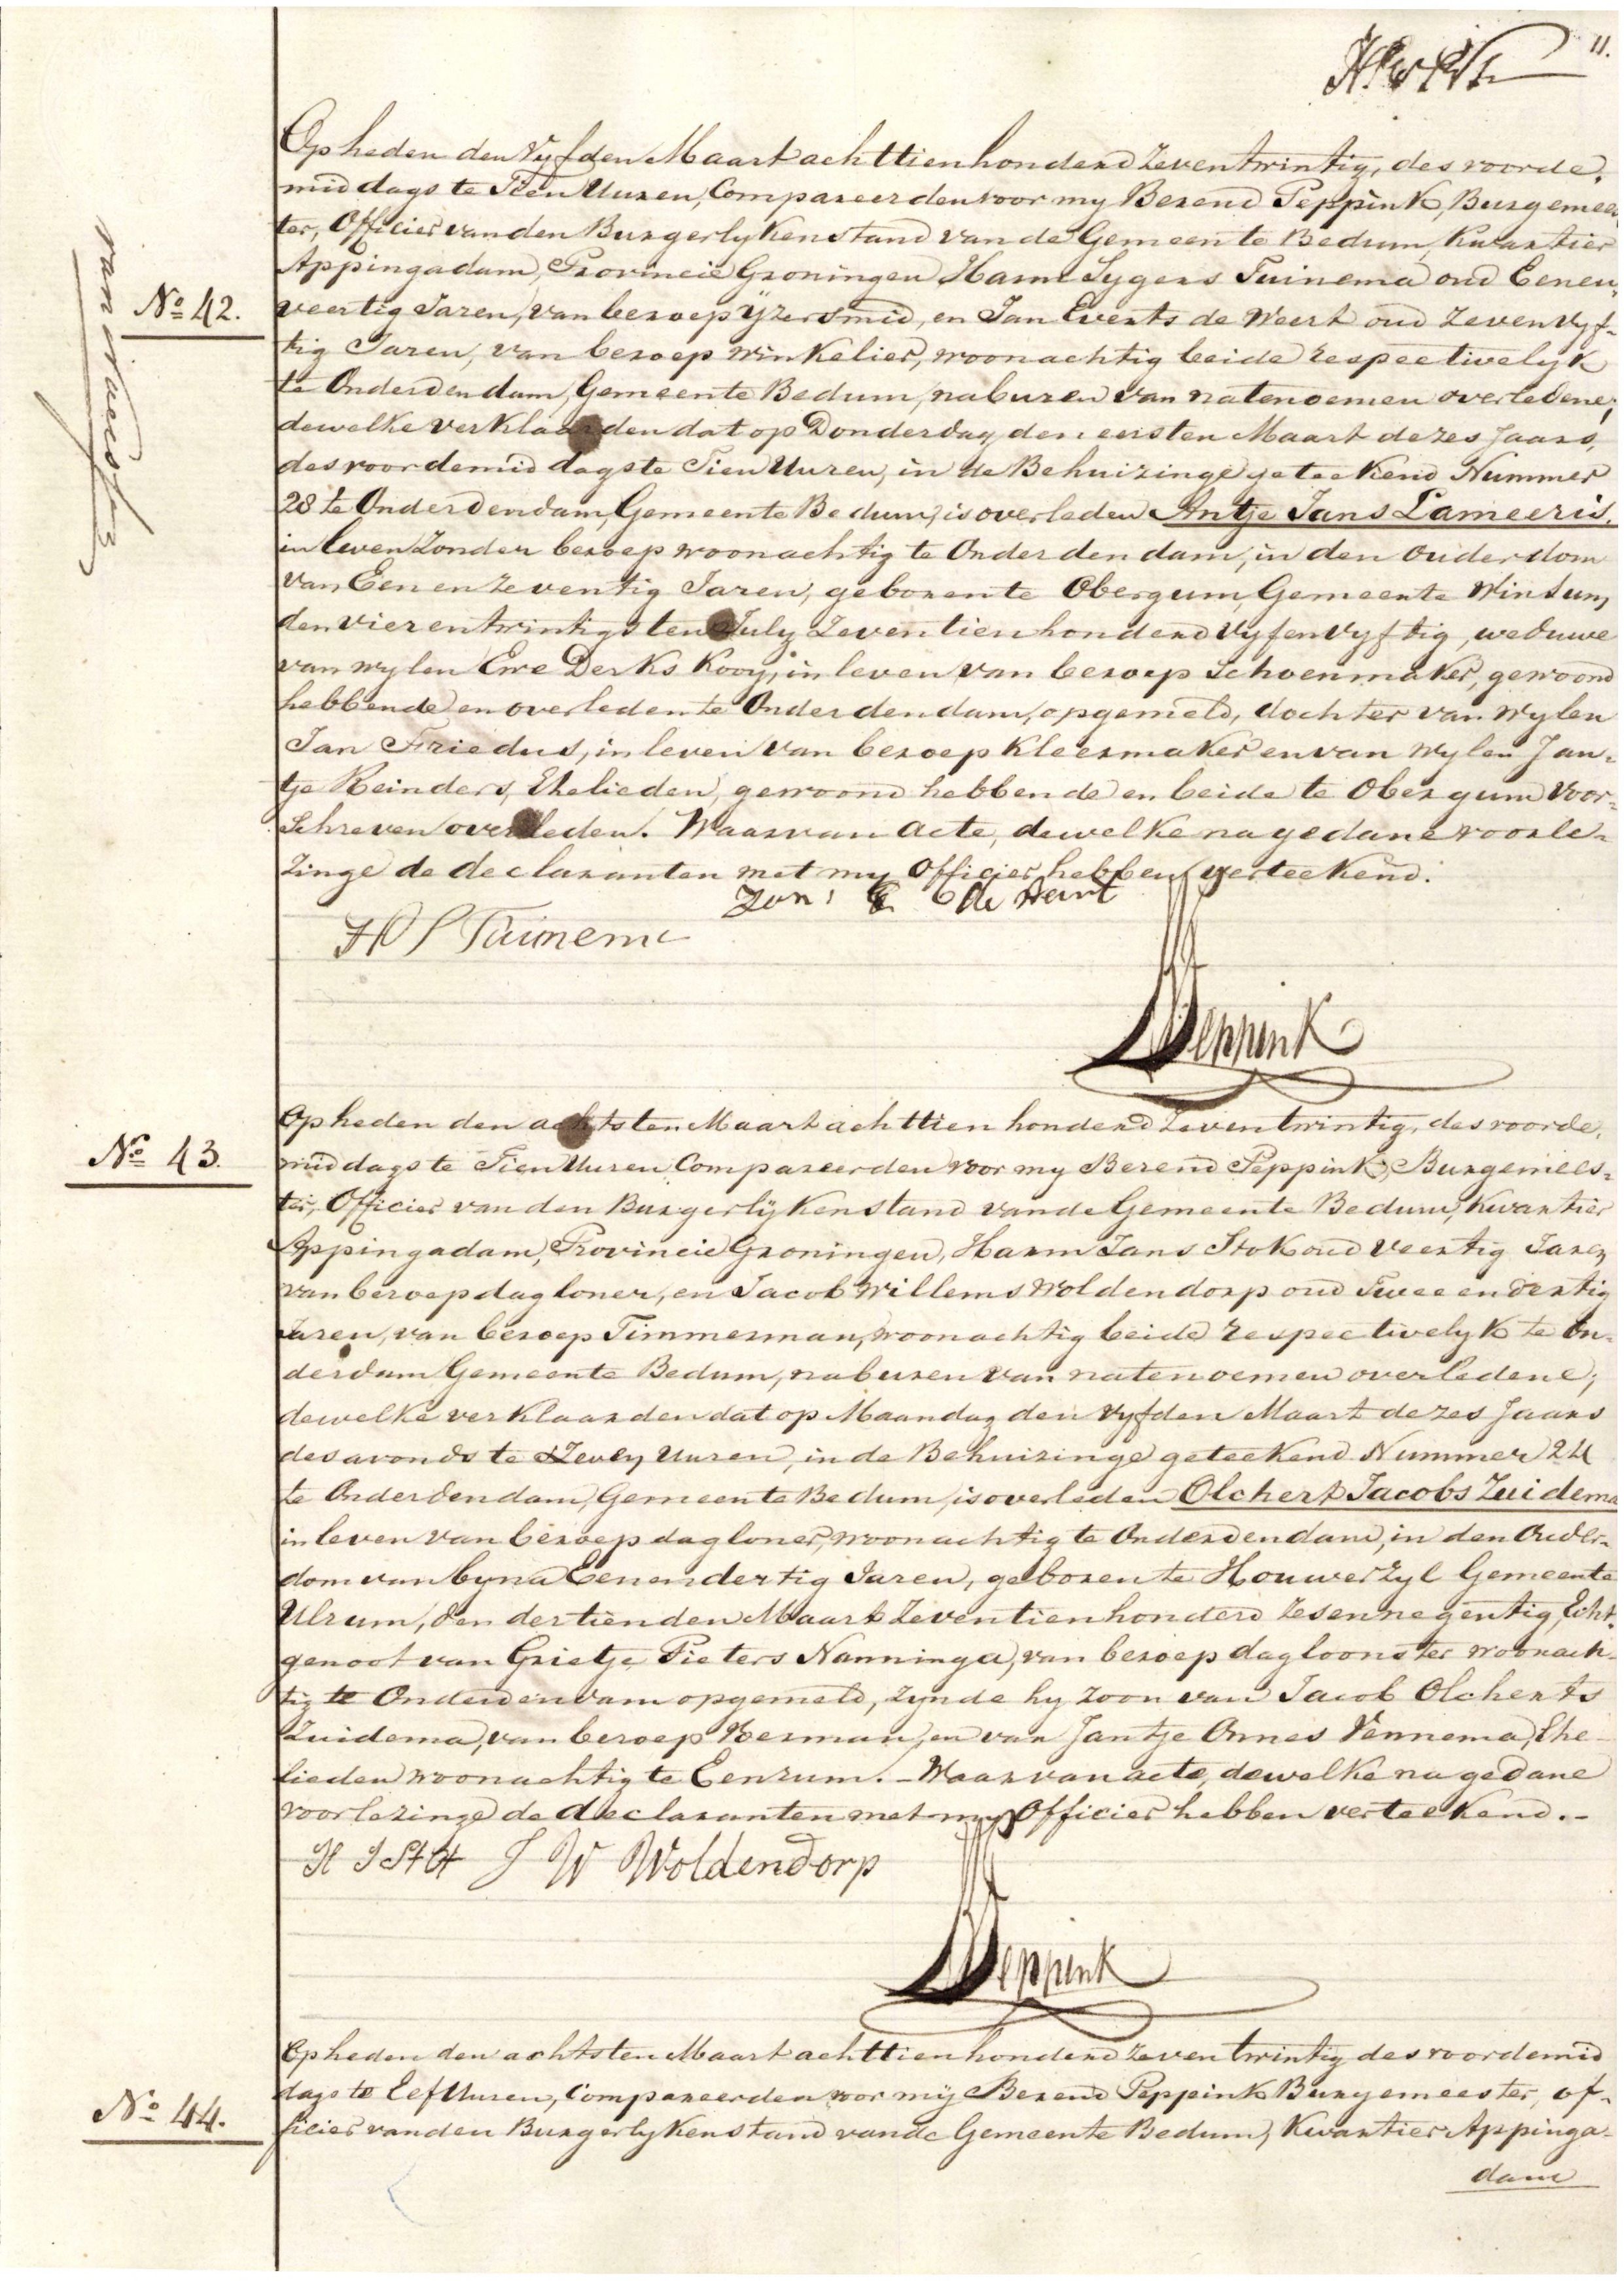 11.
Op heden den vyfden Maart achttienhonderd zeventwintig, des voorde,
middags te Tien Uuren, Compareerden voor my Berend Peppink, Burgemees,
No 42.
ter, Officier van den Burgerlyken stand van de Gemeente Bedum, Kwartier
Appingadam, Provincie Groningen Harm Sygers Tuinema oud Eenen,
veertig Jaren, van beroep yzersmid, en Jan Everts de Weert oud zevenvyf-
tig Jaren, van beroep winkelier, woonachtig beide respectivelyk
te Onderdendam, Gemeente Bedum, naburen van natenoemen overledene;
dewelke verklaarden dat op Donderdag den eersten Maart dezes Jaars,
des voordemiddags te Tien Uuren, in de Behuizinge geteekend Nummer
28 te Onderdendam, Gemeente Bedum, is overleden Antje Jans Lameeris,
in leven zonder beroep woonachtig te Onderdendam, in den ouderdom
van Een en zeventig Jaren, geboren te Obergum, Gemeente Winsum,
den vierentwintigsten July zeventienhonderd vyfenvyftig, weduwe
van wylen Ewe Derks Kooy, in leven van beroep Schoenmaker, gewoond
hebbende en overleden te Onderdendam, opgemeld, dochter van wylen
Jan Friedus, in leven van beroep Kleermaker en van wylen Jan-
tje Reinders, Ehelieden, gewoond hebbende en beide te Obergum voor-
schreven overleden. Waarvan acte, dewelke na gedane voorle-
zinge de declaranten met my Officier hebben verteekend.
H S Tuinema
Peppink
No 43.
Op heden den achtsten Maart achttien honderd zeventwintig, des voorde,
middags te Tien Uuren Compareerden voor my Berend Peppink, Burgemees-
ter, Officier van den Burgerlyken stand van de Gemeente Bedum, Kwartier
Appingadam, Provincie Groningen, Harm Jans Stok oud veertig Jaren,
van beroep dagloner, en Jacob Willems Woldendorp oud Twee en dertig
Jaren, van beroep Timmerman, woonachtig beide respectivelyk te On-
derdam Gemeente Bedum, naburen van natenoemen overledene;
dewelke verklaarden dat op Maandag den vyfden Maart dezes Jaars
des avonds te Zeven Uuren, in de Behuizinge geteekend Nummer 24
te Onderdendam, Gemeente Bedum, is overleden Olchert Jacobs Zuidema
in leven van beroep dagloner, woonachtig te Onderdendam, in den Ouder-
dom van byna Eenendertig Jaren, geboren te Houwerzyl Gemeente
Ulrum, den dertienden Maart zeventienhonderd zesennegentig, Echt-
genoot van Grietje Pieters Nanninga, van beroep dagloonster woonach-
tig te Onderdendam opgemeld, zynde hy zoon van Jacob Olcherts
Zuidema, van beroep Voerman, en van Jantje Onnes Vennema, Ehe-
lieden woonachtig te Eenrum. - Waarvan acte, dewelke na gedane
voorlezinge de declaranten met my Officier hebben verteekend. -
H J Stok J W Woldendorp
Peppink
Op heden den achtsten Maart achttien honderd zeventwintig des voordemid
dags te Eef Uuren, Compareerden voor mij Berend Peppink Burgemeester, of-
No 44.
ficier van den Burgerlyken stand van de Gemeente Bedum, Kwartier Appinga-
dam